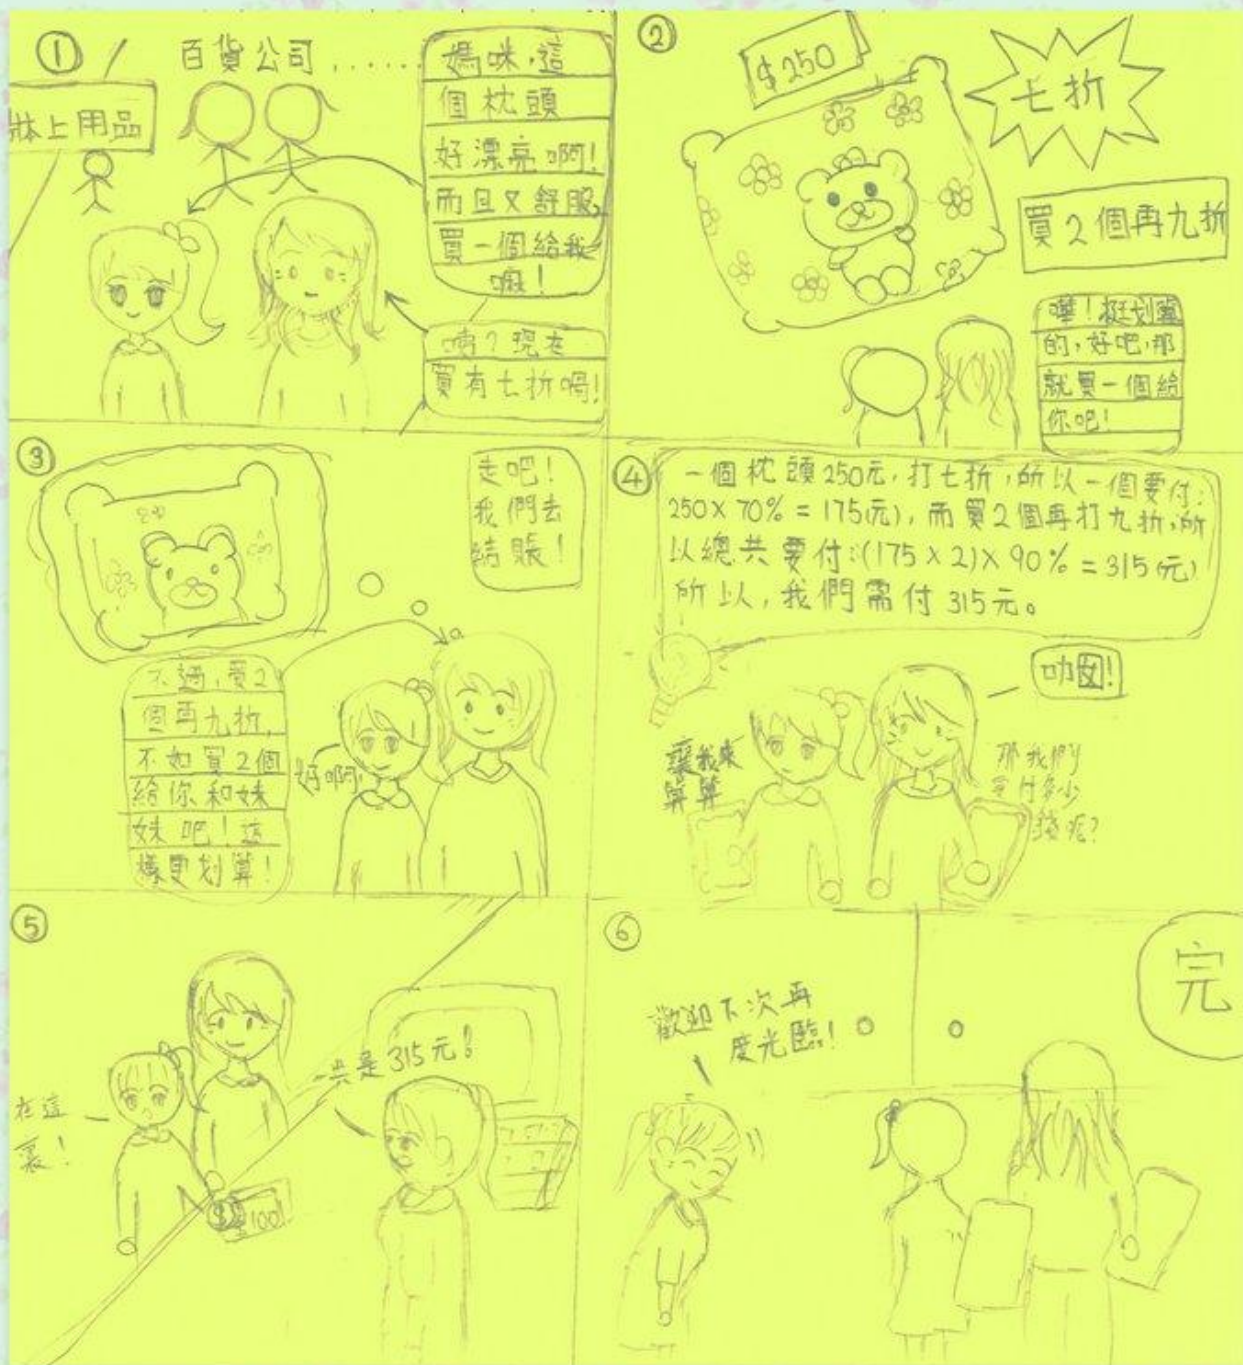 ①
百貨公司......
牀上用品
媽咪,這
個枕頭
好漂亮啊!
而且又舒服,
買一個給我
嘛!
哦?現在
買有七折喎!
②
$250
七折
買2個再九折
嘩!挺划算
的,好吧,那
就買一個給
你吧!
③
走吧!
我們去
結賬!
不過,買2
個再九折,
不如買2個
給你和妹
妹吧!這
樣更划算!
好啊!
④
一個枕頭250元,打七折,所以一個要付:
250×70%=175(元),而買2個再打九折,所
以總共要付:(175×2)×90%=315(元)
所以,我們需付315元。
讓我來
算算
那我們
要付多少
錢呢?
⑤
一共是315元!
在這
裏!
$100
⑥
歡迎下次再
度光臨!
完